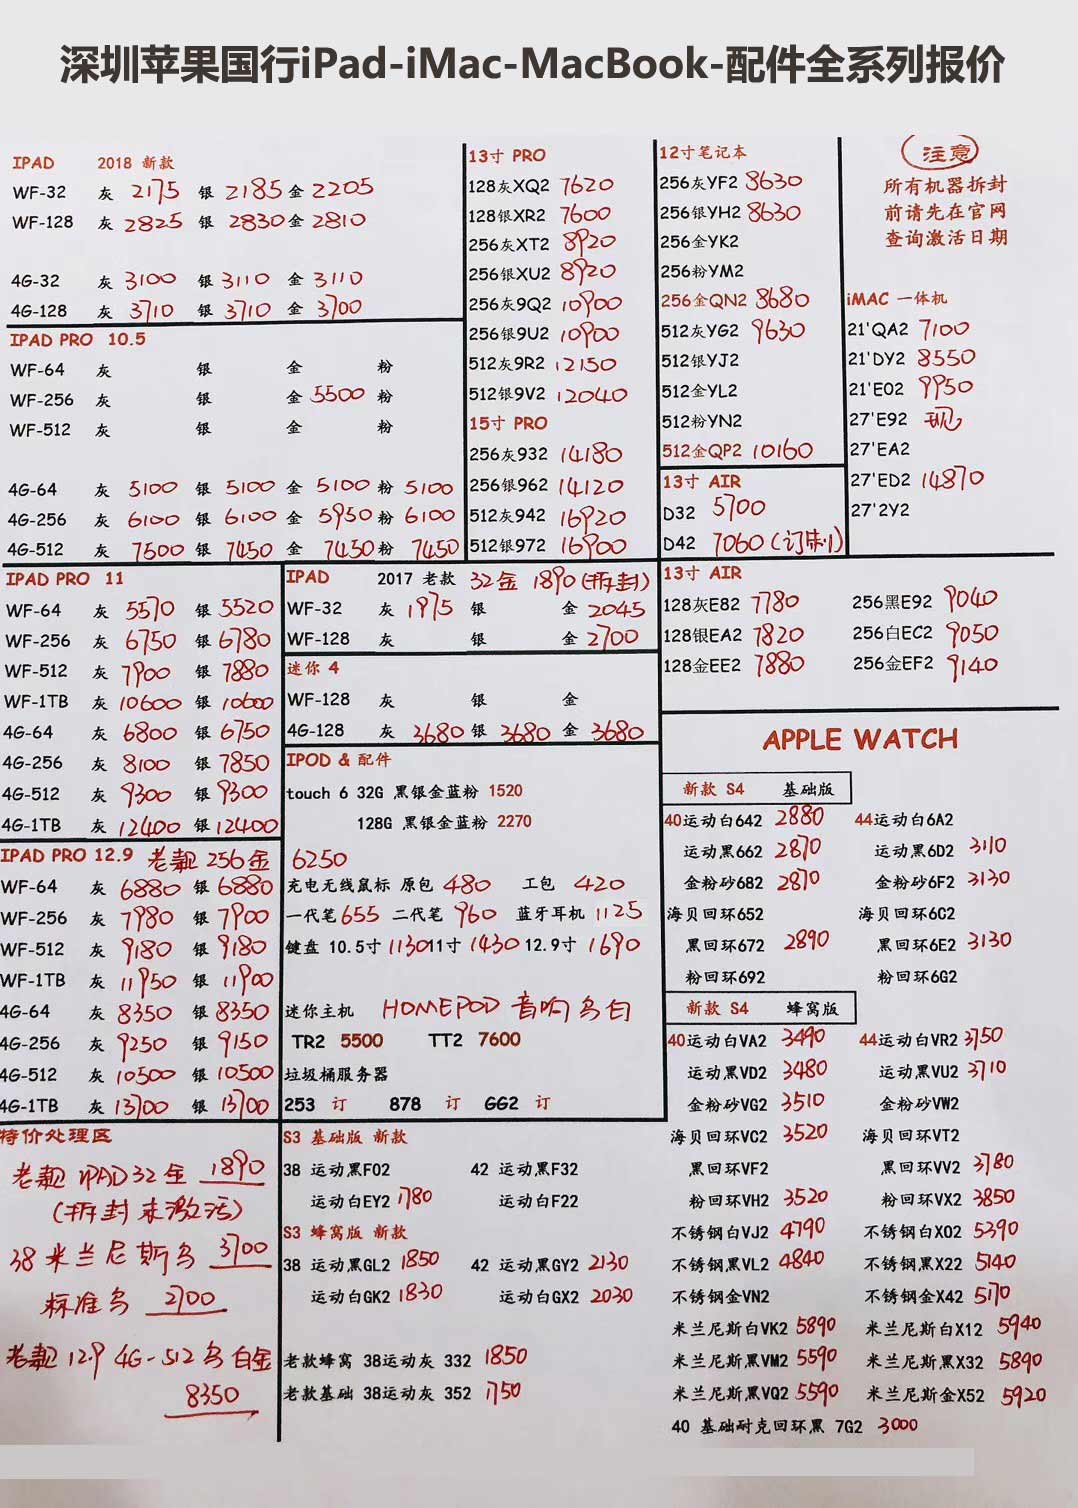 深圳苹果国行iPad-iMac-MacBook-配件全系列报价
IPAD 2018 新款
WF-32 灰 2175 银 2185 金 2205
WF-128 灰 2825 银 2830 金 2810
4G-32 灰 3100 银 3110 金 3110
4G-128 灰 3710 银 3710 金 3700
IPAD PRO 10.5
WF-64 灰 银 金 粉
WF-256 灰 银 金 5500 粉
WF-512 灰 银 金 粉
4G-64 灰 5100 银 5100 金 5100 粉 5100
4G-256 灰 6100 银 6100 金 5950 粉 6100
4G-512 灰 7500 银 7450 金 7450 粉 7450
13寸 PRO
128灰XQ2 7620
128银XR2 7600
256灰XT2 8920
256银XU2 8920
256灰9Q2 10900
256银9U2 10900
512灰9R2 12150
512银9V2 12040
15寸 PRO
256灰932 14180
256银962 14120
512灰942 16920
512银972 16900
12寸笔记本
256灰YF2 8630
256银YH2 8630
256金YK2
256粉YM2
256金QN2 8680
512灰YG2 9630
512银YJ2
512金YL2
512粉YN2
512金QP2 10160
13寸 AIR
D32 5700
D42 7060(订制)
注意
所有机器拆封
前请先在官网
查询激活日期
iMAC 一体机
21'QA2 7100
21'DY2 8550
21'E02 9950
27'E92 现
27'EA2
27'ED2 14870
27'2Y2
IPAD PRO 11
WF-64 灰 5570 银 5520
WF-256 灰 6750 银 6780
WF-512 灰 7900 银 7880
WF-1TB 灰 10600 银 10600
4G-64 灰 6800 银 6750
4G-256 灰 8100 银 7850
4G-512 灰 9300 银 9300
4G-1TB 灰 12400 银 12400
IPAD 2017 老款 32金 1890(拆封)
WF-32 灰 1975 银 金 2045
WF-128 灰 银 金 2700
迷你 4
WF-128 灰 银 金
4G-128 灰 3680 银 3680 金 3680
IPOD & 配件
touch 6 32G 黑银金蓝粉 1520
128G 黑银金蓝粉 2270
IPAD PRO 12.9 老款 256金 6250
WF-64 灰 6880 银 6880
WF-256 灰 7980 银 7900
WF-512 灰 9180 银 9180
WF-1TB 灰 11950 银 11900
4G-64 灰 8350 银 8350
4G-256 灰 9250 银 9150
4G-512 灰 10500 银 10500
4G-1TB 灰 13700 银 13700
充电无线鼠标 原包 480 工包 420
一代笔 655 二代笔 960 蓝牙耳机 1125
键盘 10.5寸 1130 11寸 1430 12.9寸 1690
迷你主机 HOMEPOD 音响乌白
TR2 5500 TT2 7600
垃圾桶服务器
253 订 878 订 GG2 订
13寸 AIR
128灰E82 7780 256黑E92 9040
128银EA2 7820 256白EC2 9050
128金EE2 7880 256金EF2 9140
APPLE WATCH
新款 S4 基础版
40运动白642 2880 44运动白6A2
运动黑662 2870 运动黑6D2 3110
金粉砂682 2870 金粉砂6F2 3130
海贝回环652 海贝回环6C2
黑回环672 2890 黑回环6E2 3130
粉回环692 粉回环6G2
新款 S4 蜂窝版
40运动白VA2 3490 44运动白VR2 3750
运动黑VD2 3480 运动黑VU2 3710
金粉砂VG2 3510 金粉砂VW2
海贝回环VC2 3520 海贝回环VT2
黑回环VF2 黑回环VV2 3780
粉回环VH2 3520 粉回环VX2 3850
不锈钢白VJ2 4790 不锈钢白XO2 5390
不锈钢黑VL2 4840 不锈钢黑X22 5140
不锈钢金VN2 不锈钢金X42 5170
米兰尼斯白VK2 5890 米兰尼斯白X12 5940
米兰尼斯黑VM2 5590 米兰尼斯黑X32 5890
米兰尼斯黑VQ2 5590 米兰尼斯金X52 5920
40 基础耐克回环黑 7G2 3000
特价处理区
老款 IPAD 32金 1890
(拆封未激活)
38米兰尼斯乌 3700
标准乌 2700
老款 12.9 4G-512乌白金
8350
S3 基础版 新款
38 运动黑F02 42 运动黑F32
运动白EY2 1780 运动白F22
S3 蜂窝版 新款
38 运动黑GL2 1850 42 运动黑GY2 2130
运动白GK2 1830 运动白GX2 2030
老款蜂窝 38运动灰 332 1850
老款基础 38运动灰 352 1750